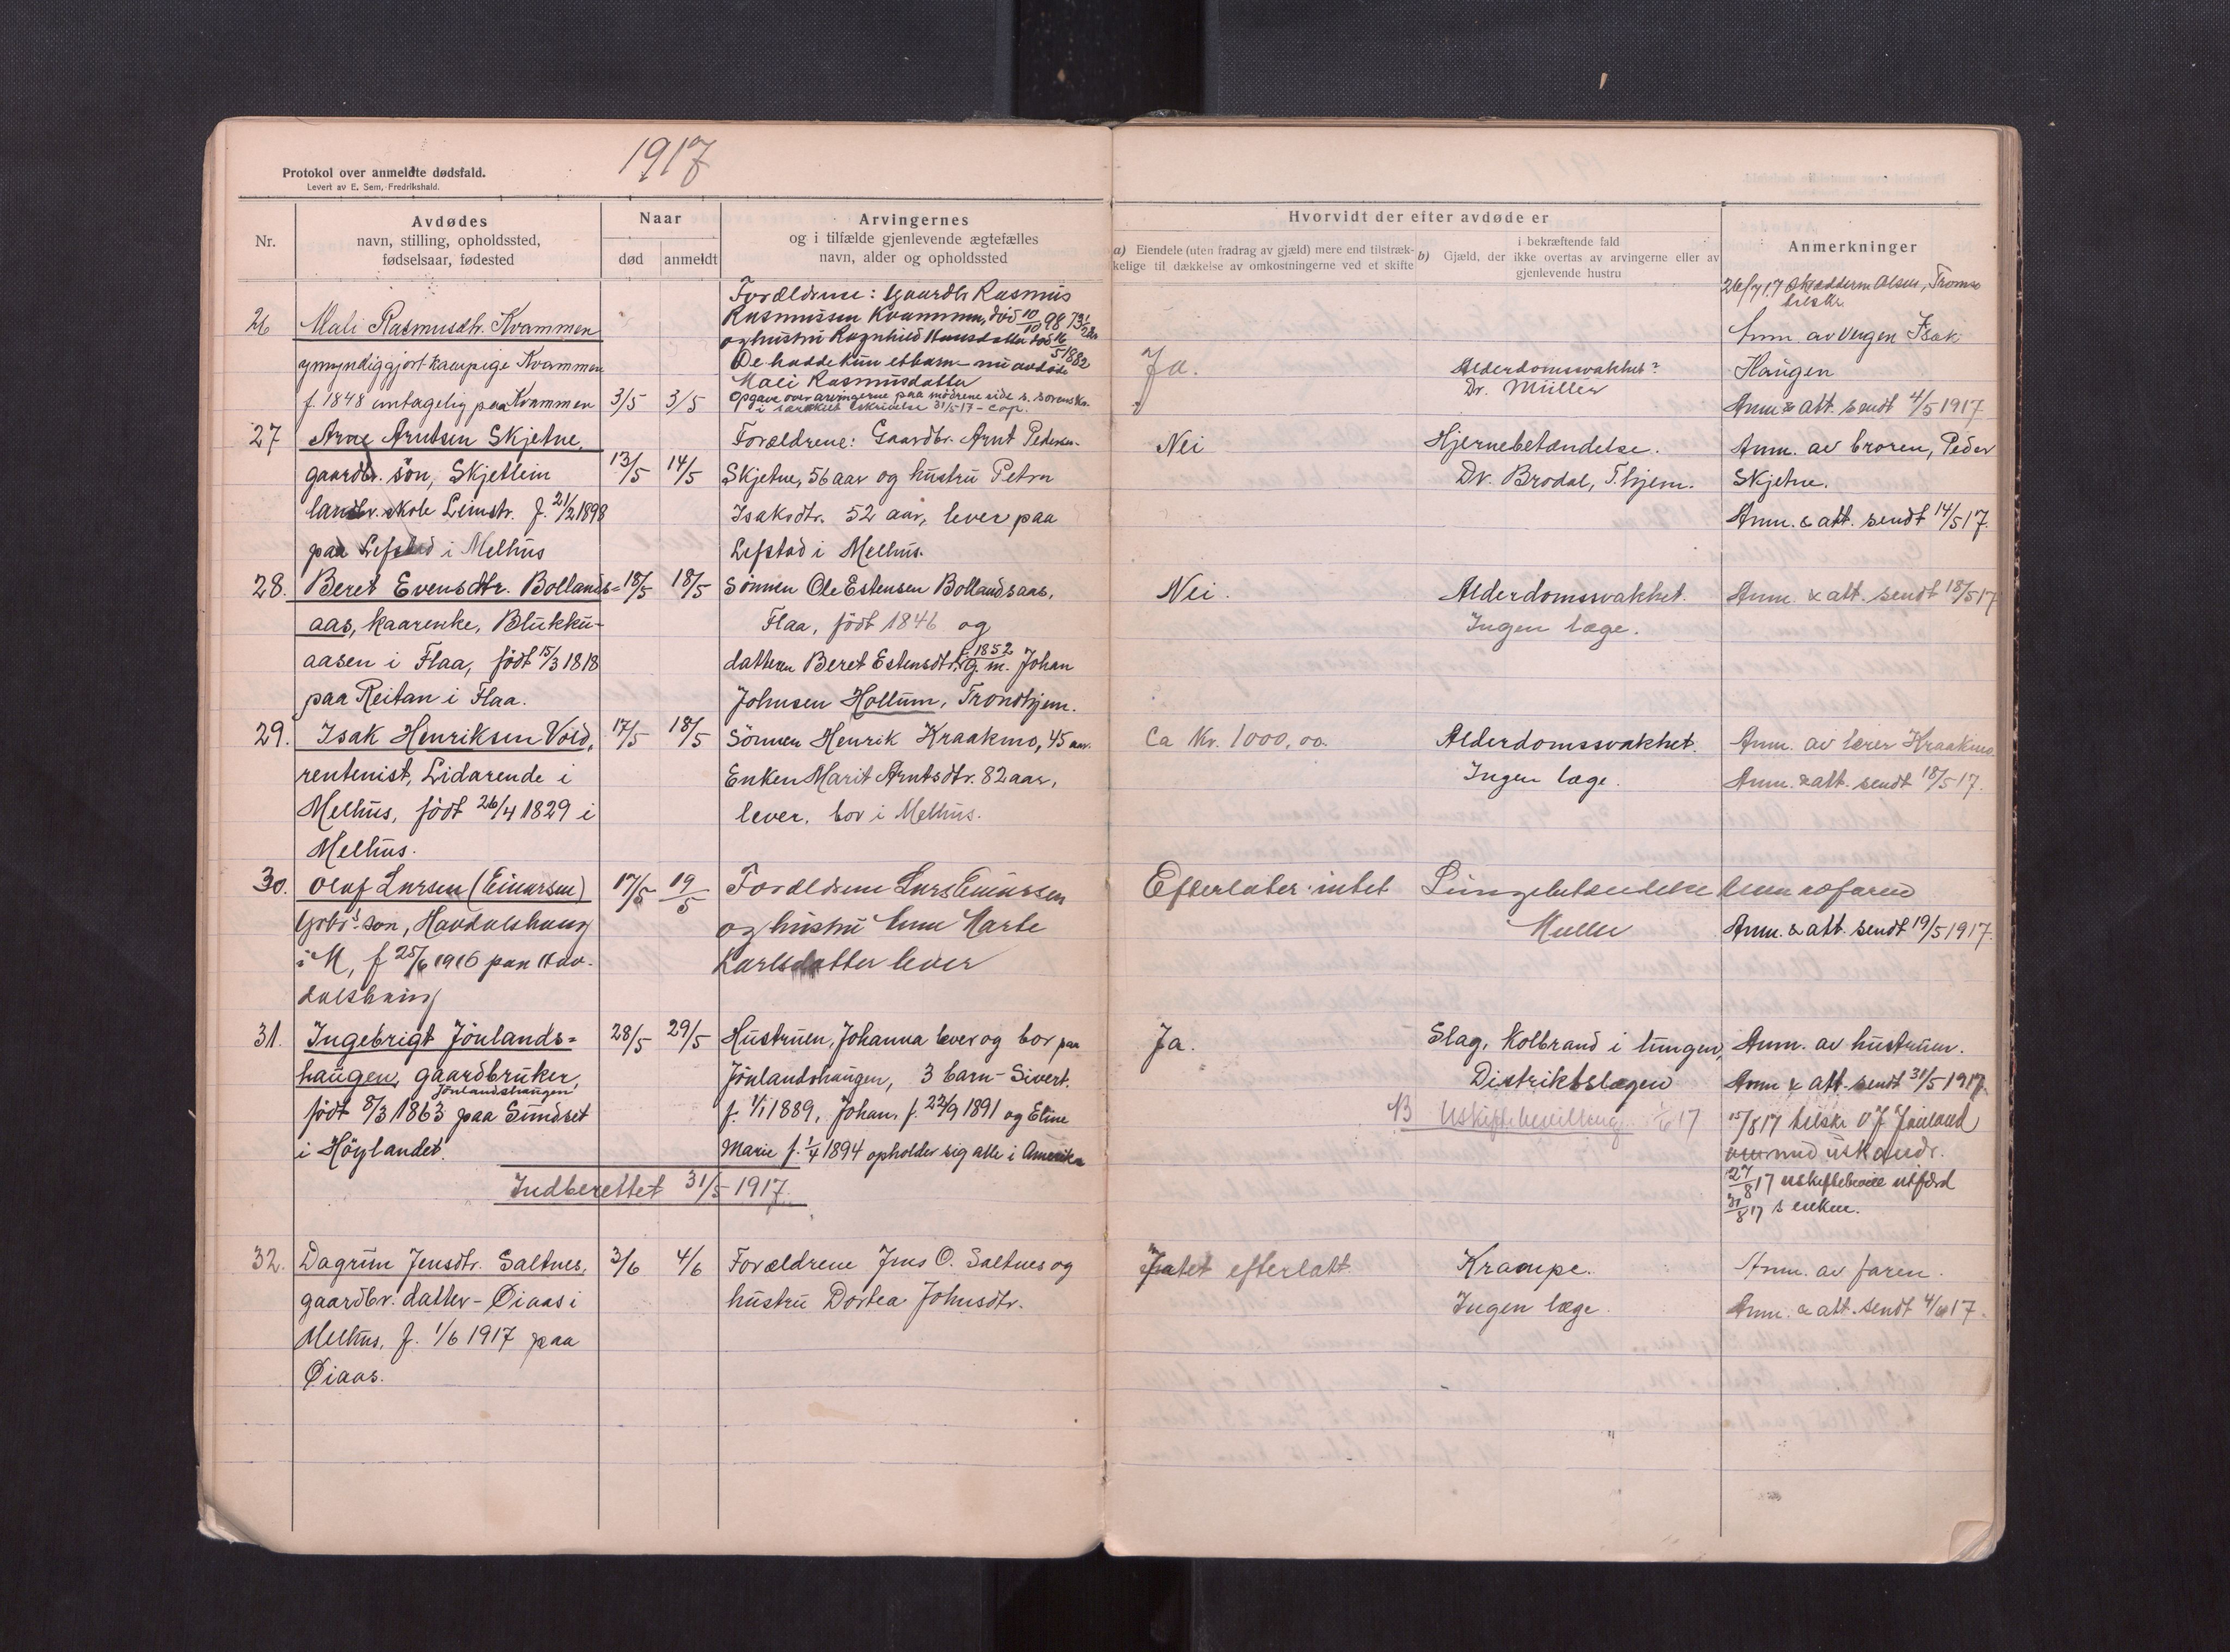 1917
Protokol over anmeldte dødsfald.
Levert av E. Sem, Fredrikshald.
Nr.
Avdødes
navn, stilling, opholdssted,
fødselsaar, fødested
Naar
død
anmeldt
Arvingernes
og i tilfælde gjenlevende ægtefælles
navn, alder og opholdssted
Hvorvidt der efter avdøde er
a) Eiendele (uten fradrag av gjæld) mere end tilstræk-
kelige til dækkelse av omkostningerne ved et skifte
b) Gjæld, der
i bekræftende fald
ikke overtas av arvingerne eller av
gjenlevende hustru
Anmerkninger
26
Mali Rasmusdtr. Kvammen
umyndiggjort Kvammen
f. 1848 antagelig paa Kvammen
3/5
3/5
Forældrene: Gaardbr Rasmus
Rasmussen Kvammen, död 10/10 98
og hustru Ragnhild Hansdatter död 16/5 1882
De hadde kun et barn nu avdøde
Mali Rasmusdatter
Opgave over arvingerne paa mödrene side s. sorenskr.
i særskilt skrivelse 31/5 17 - cop.
Ja.
Alderdomssvakhet?
Dr. Müller
26/7 17 Olsen, Tromsø
tilskr.
Anm. av vergen Isak
Haugen
Anm & att. sendt 4/5 1917
27
Arne Arntsen Skjetne,
gaardbr. sön, Skjetlein
landbr. skole Leinstr. f. 21/2 1898
paa Lefstad i Melhus
13/5
14/5
Forældrene: Gaardbr. Arnt Pedersen
Skjetne, 56 aar og hustru Petra
Isaksdtr. 52 aar, lever paa
Lefstad i Melhus.
Nei
Hjernebetændelse.
Dr. Brodal, T.hjem.
Anm. av broren, Peder
Skjetne.
Anm. & att. sendt 14/5 17.
28.
Beret Evensdtr. Bollands=
aas, kaarenke, Blukku-
aasen i Flaa, födt 15/3 1818
paa Reitan i Flaa.
18/5
18/5
Sönnen Ole Estensen Bollandsaas,
Flaa, födt 1846 og
datteren Beret Estensdtr. f. 1852 g. m. Johan
Johnsen Hollum, Trondhjem.
Nei.
Alderdomssvakhet.
Ingen læge.
Anm. & att. sendt 18/5 17
29.
Isak Henriksen Vold,
rentenist, Lidarende i
Melhus, födt 26/4 1829 i
Melhus.
17/5
18/5
Sönnen Henrik Kraakmo, 45 aar.
Enken Marit Arntsdtr. 82 aar,
lever, bor i Melhus.
Ca Kr. 1000,00.
Alderdomssvakhet.
Ingen læge.
Anm. av lærer Kraakmo.
Anm. & att. sendt 18/5 17.
30.
Oluf Larsen (Einarsen)
Gbr's sön, Havdalshaug
i M, f 25/6 1916 paa Hav-
dalshaug
17/5
19/5
Forældrene Lars Einarsen
og hustru Anne Marte
Larlsdatter lever
Efterlater intet
Lungebetændelse
Muller
Anm av faren
Anm. & att. sendt 19/5 1917.
31.
Ingebrigt Jönlands=
haugen, gaardbruker,
Jönlandshaugen
födt 8/3 1863 paa Sundset
i Höylandet.
28/5
29/5
Hustruen, Johanna lever og bor paa
Jönlandshaugen, 3 barn - Sivert.
f. 1/1 1889, Johan, f. 22/9 1891 og Eline
Marie f. 1/4 1894 opholder sig alle i Amerika
Ja.
Slag, Kolbrand i lungen,
Distriktslægen
NB Uskiftebevilling 17
Anm. av hustruen.
Anm & att. sendt 31/5 1917.
15/8 17 tilskr O J Jönland
med uskandr.
27/8 17 uskiftebevill utfærd
31/8 17 s enken.
Indberettet 31/5 1917.
32.
Dagrun Jensdtr. Saltnes,
gaardbr. datter - Øiaas i
Melhus, f. 1/6 1917 paa
Øiaas.
3/6
4/6
Forældrene Jens O. Saltnes og
hustru Dortea Johnsdtr.
Intet efterlatt.
Krampe.
Ingen læge.
Anm. av faren.
Anm. & att. sendt 4/6 17.